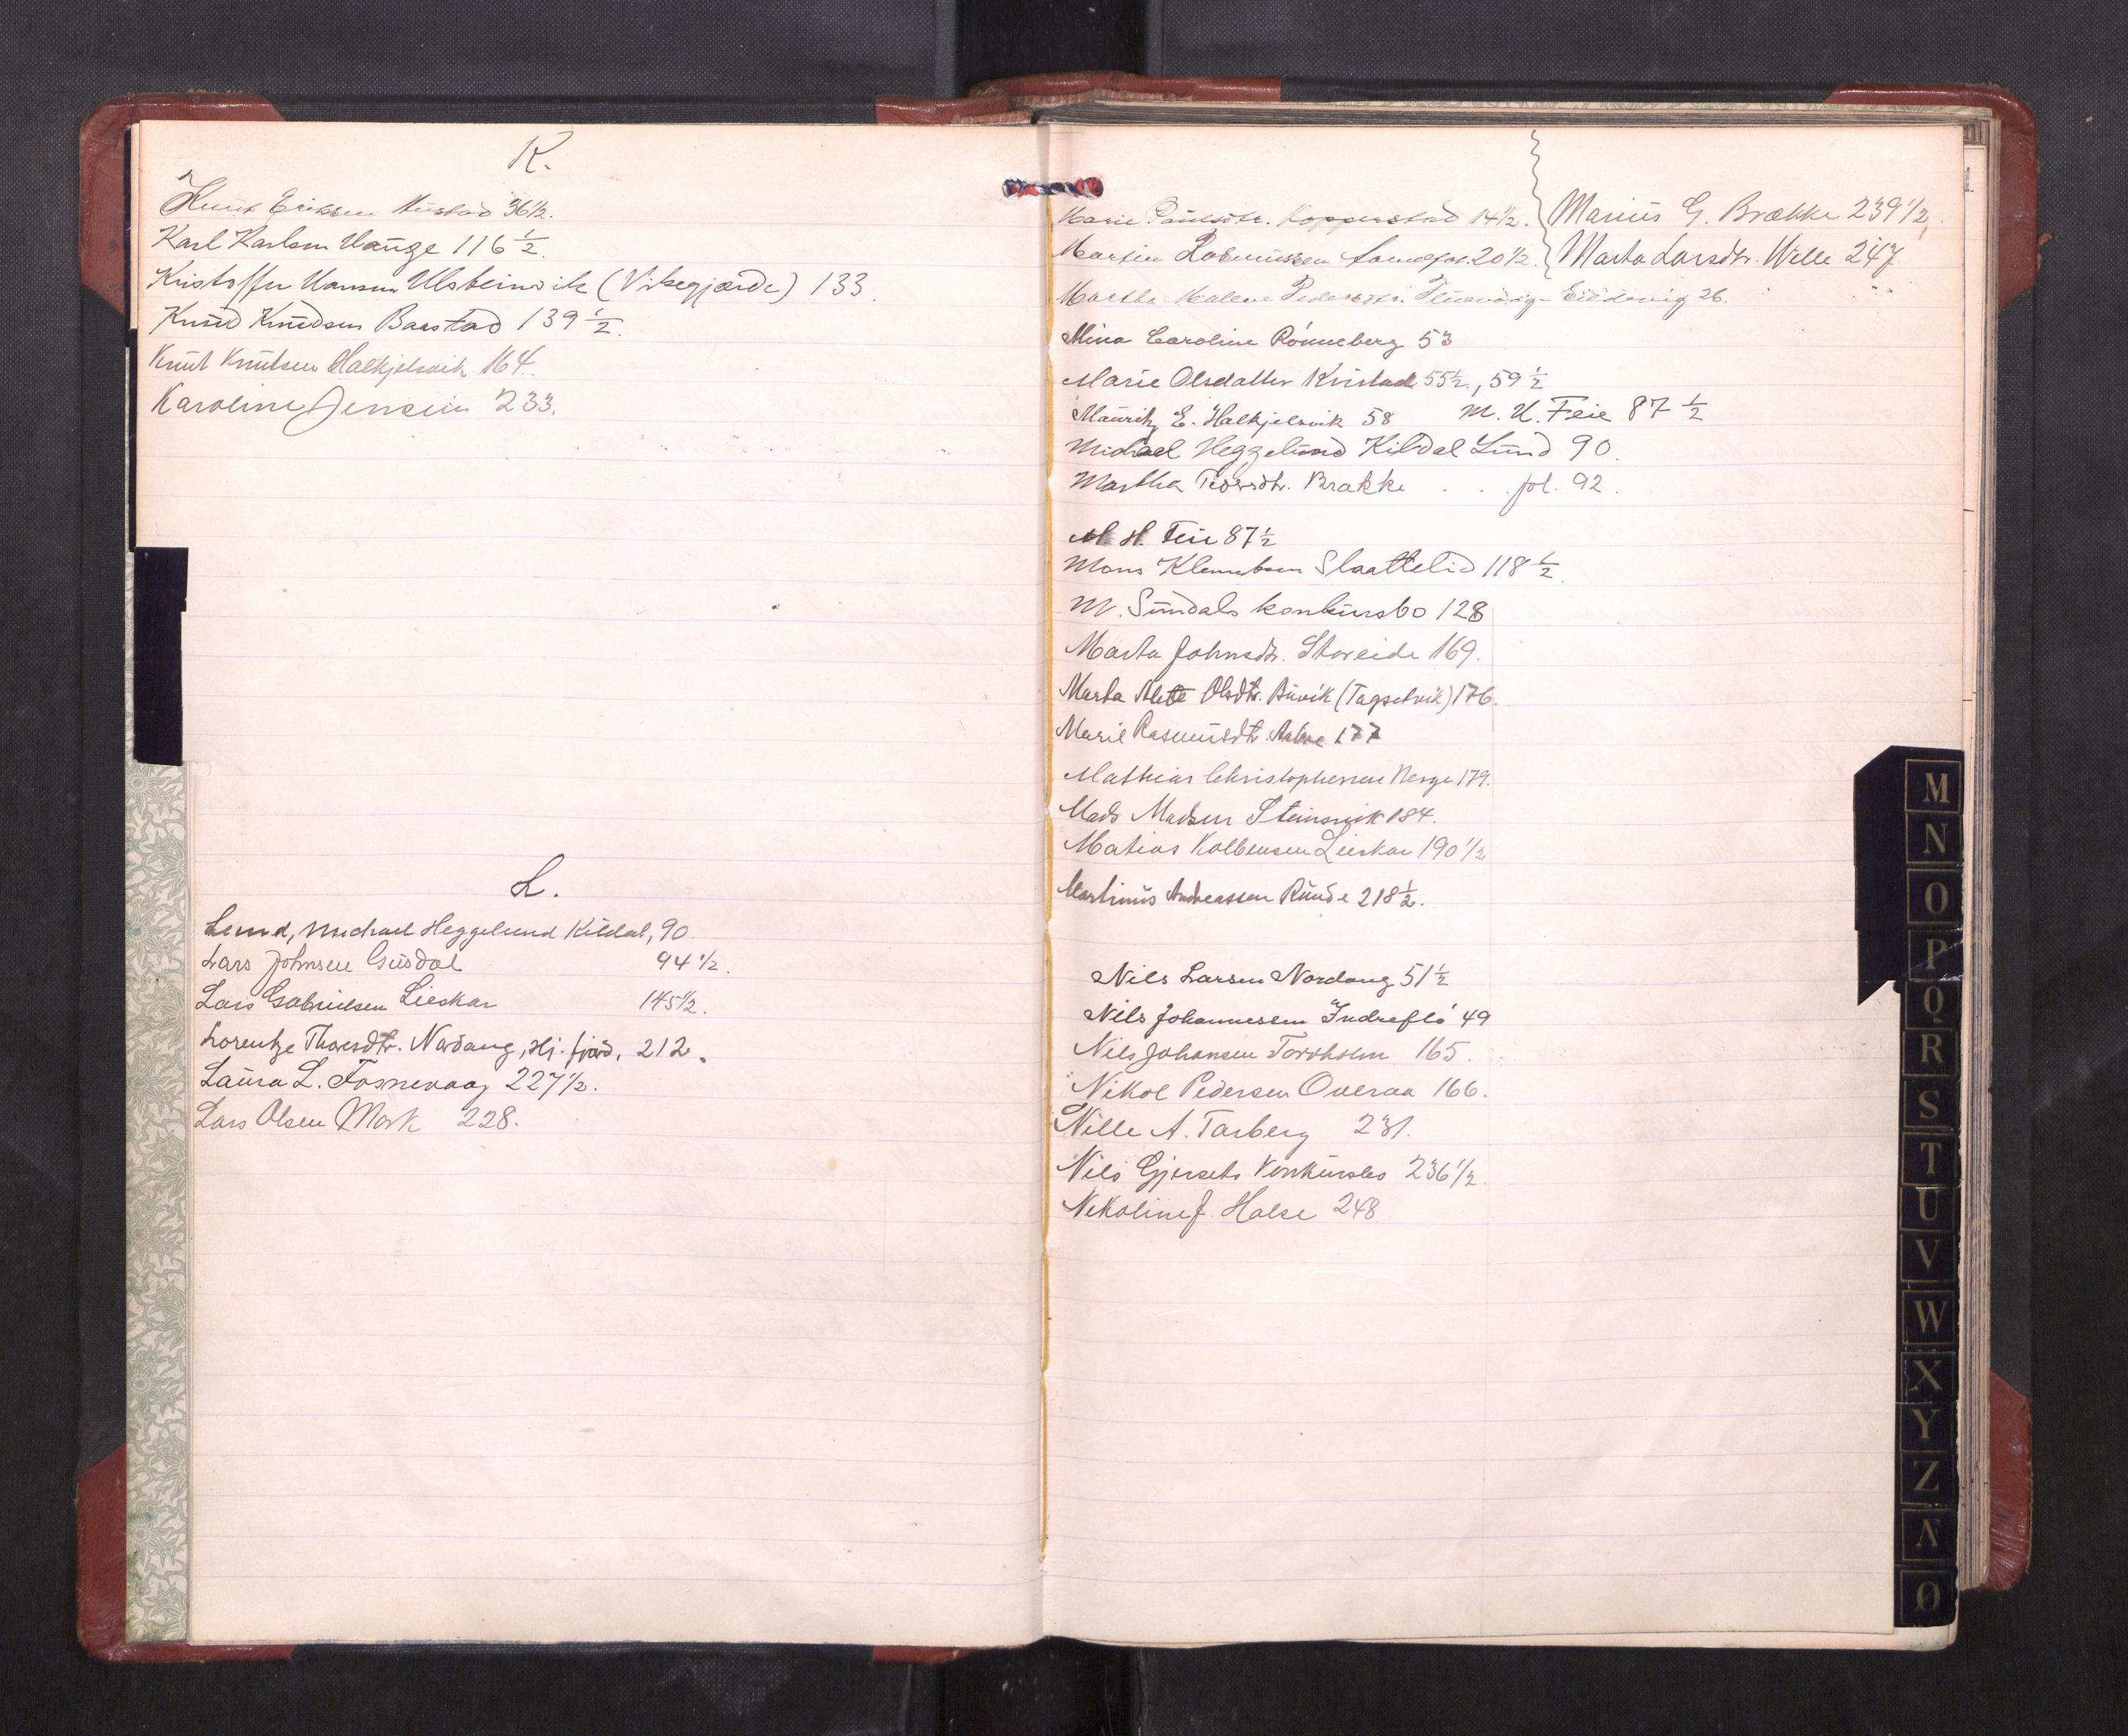 K.
Knut Eriksen Mustad 36 1/2.
Karl Karlsen Hauge 116 1/2.
Kristoffer Hansen Ulsteinvik (Viksegjærde) 133.
Knud Knudsen Baastad 139 1/2.
Knut Knutsen Halkjelsvik 164.
Karoline Jensen 233.
L.
Lund, Michael Heggelund Kildal, 90
Lars Johnsen Gusdal 94 1/2.
Lars Gabrielsen Lieskar 145 1/2.
Lorentze Thoresdtr. Nordang, Hj. fjord, 212.
Laura L. Fosnevaag 227 1/2.
Lars Olsen Mork 228.
Marie Paulsdtr. Kopperstad 14 1/2. Marius G. Brække 239 1/2,
Martin Rasmussen 20 1/2. Marta Larsdtr. Welle 247
Martha Malene Pedersdtr. 26.
Mina Caroline Rönneberg 53
Marie Olsdatter Kvistad 55 1/2., 59 1/2
Mauritz E. Halkjelsvik 58 M. H. Feie 87 1/2
Michael Heggelund Kildal Lund 90.
Martha Pedersdtr. Brække . . . fol. 92.
M. H. Feie 87 1/2
Mons Klemetsen Slaattelid 118 1/2.
M. Sundals konkursbo 128
Marta Johnsdtr. Storeide 169.
Marta Olsdtr. Buvik (Tagsetvik) 176.
Marie Rasmusdtr. 177
Mathias Christophersen Berge 179.
Mads Madsen Steinsvik 184.
Matias Kolbensen Lieskar 190 1/2
Martinus Andreassen Runde 218 1/2.
Nils Larsen Nordang 51 1/2
Nils Johannessen Indreflö 49
Nils Johansen Torvholm 165.
Nikol Pedersen Overaa 166.
Nille A. Tarberg 231.
Nils Gjersets Konkursbo 236 1/2.
Nikoline J. Halse 248
M
N
O
P
Q
R
S
T
U
V
W
X
Y
Z
Æ
Ø